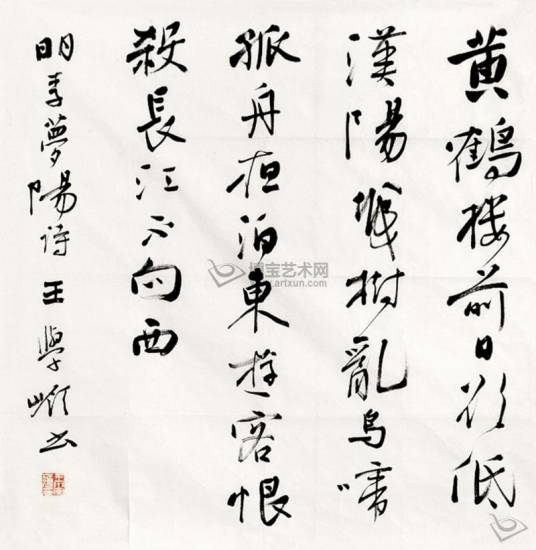 黄鶴楼前日欲低
漢陽城樹亂烏啼
孤舟夜泊東遊客恨
殺長江不向西
明李夢陽詩 王學嶺书
博宝艺术网
artxun.com